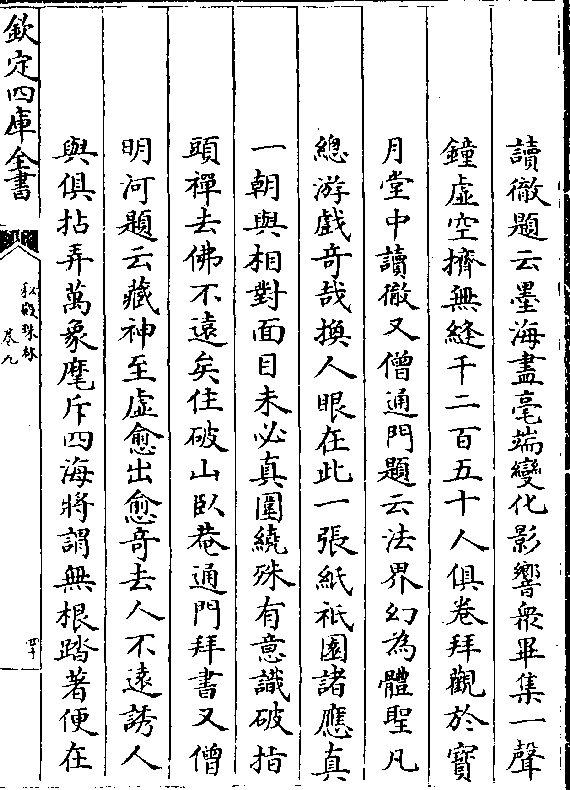 讀徹題云墨海盡毫端變化影響衆畢集一聲
鐘虛空擠無縫千二百五十人俱卷拜觀於寶
月堂中讀徹又僧通門題云法界幻為體聖凡
總游戲奇哉換人眼在此一張紙祇園諸應真
一朝與相對面目未必真圍繞殊有意識破指
頭禪去佛不遠矣住破山臥菴通門拜書又僧
明河題云藏神至虛愈出愈奇去人不遠誘人
與俱拈弄萬象麾斥四海將謂無根踏著便在
欽定四庫全書
秘殿珠林
卷九
四十